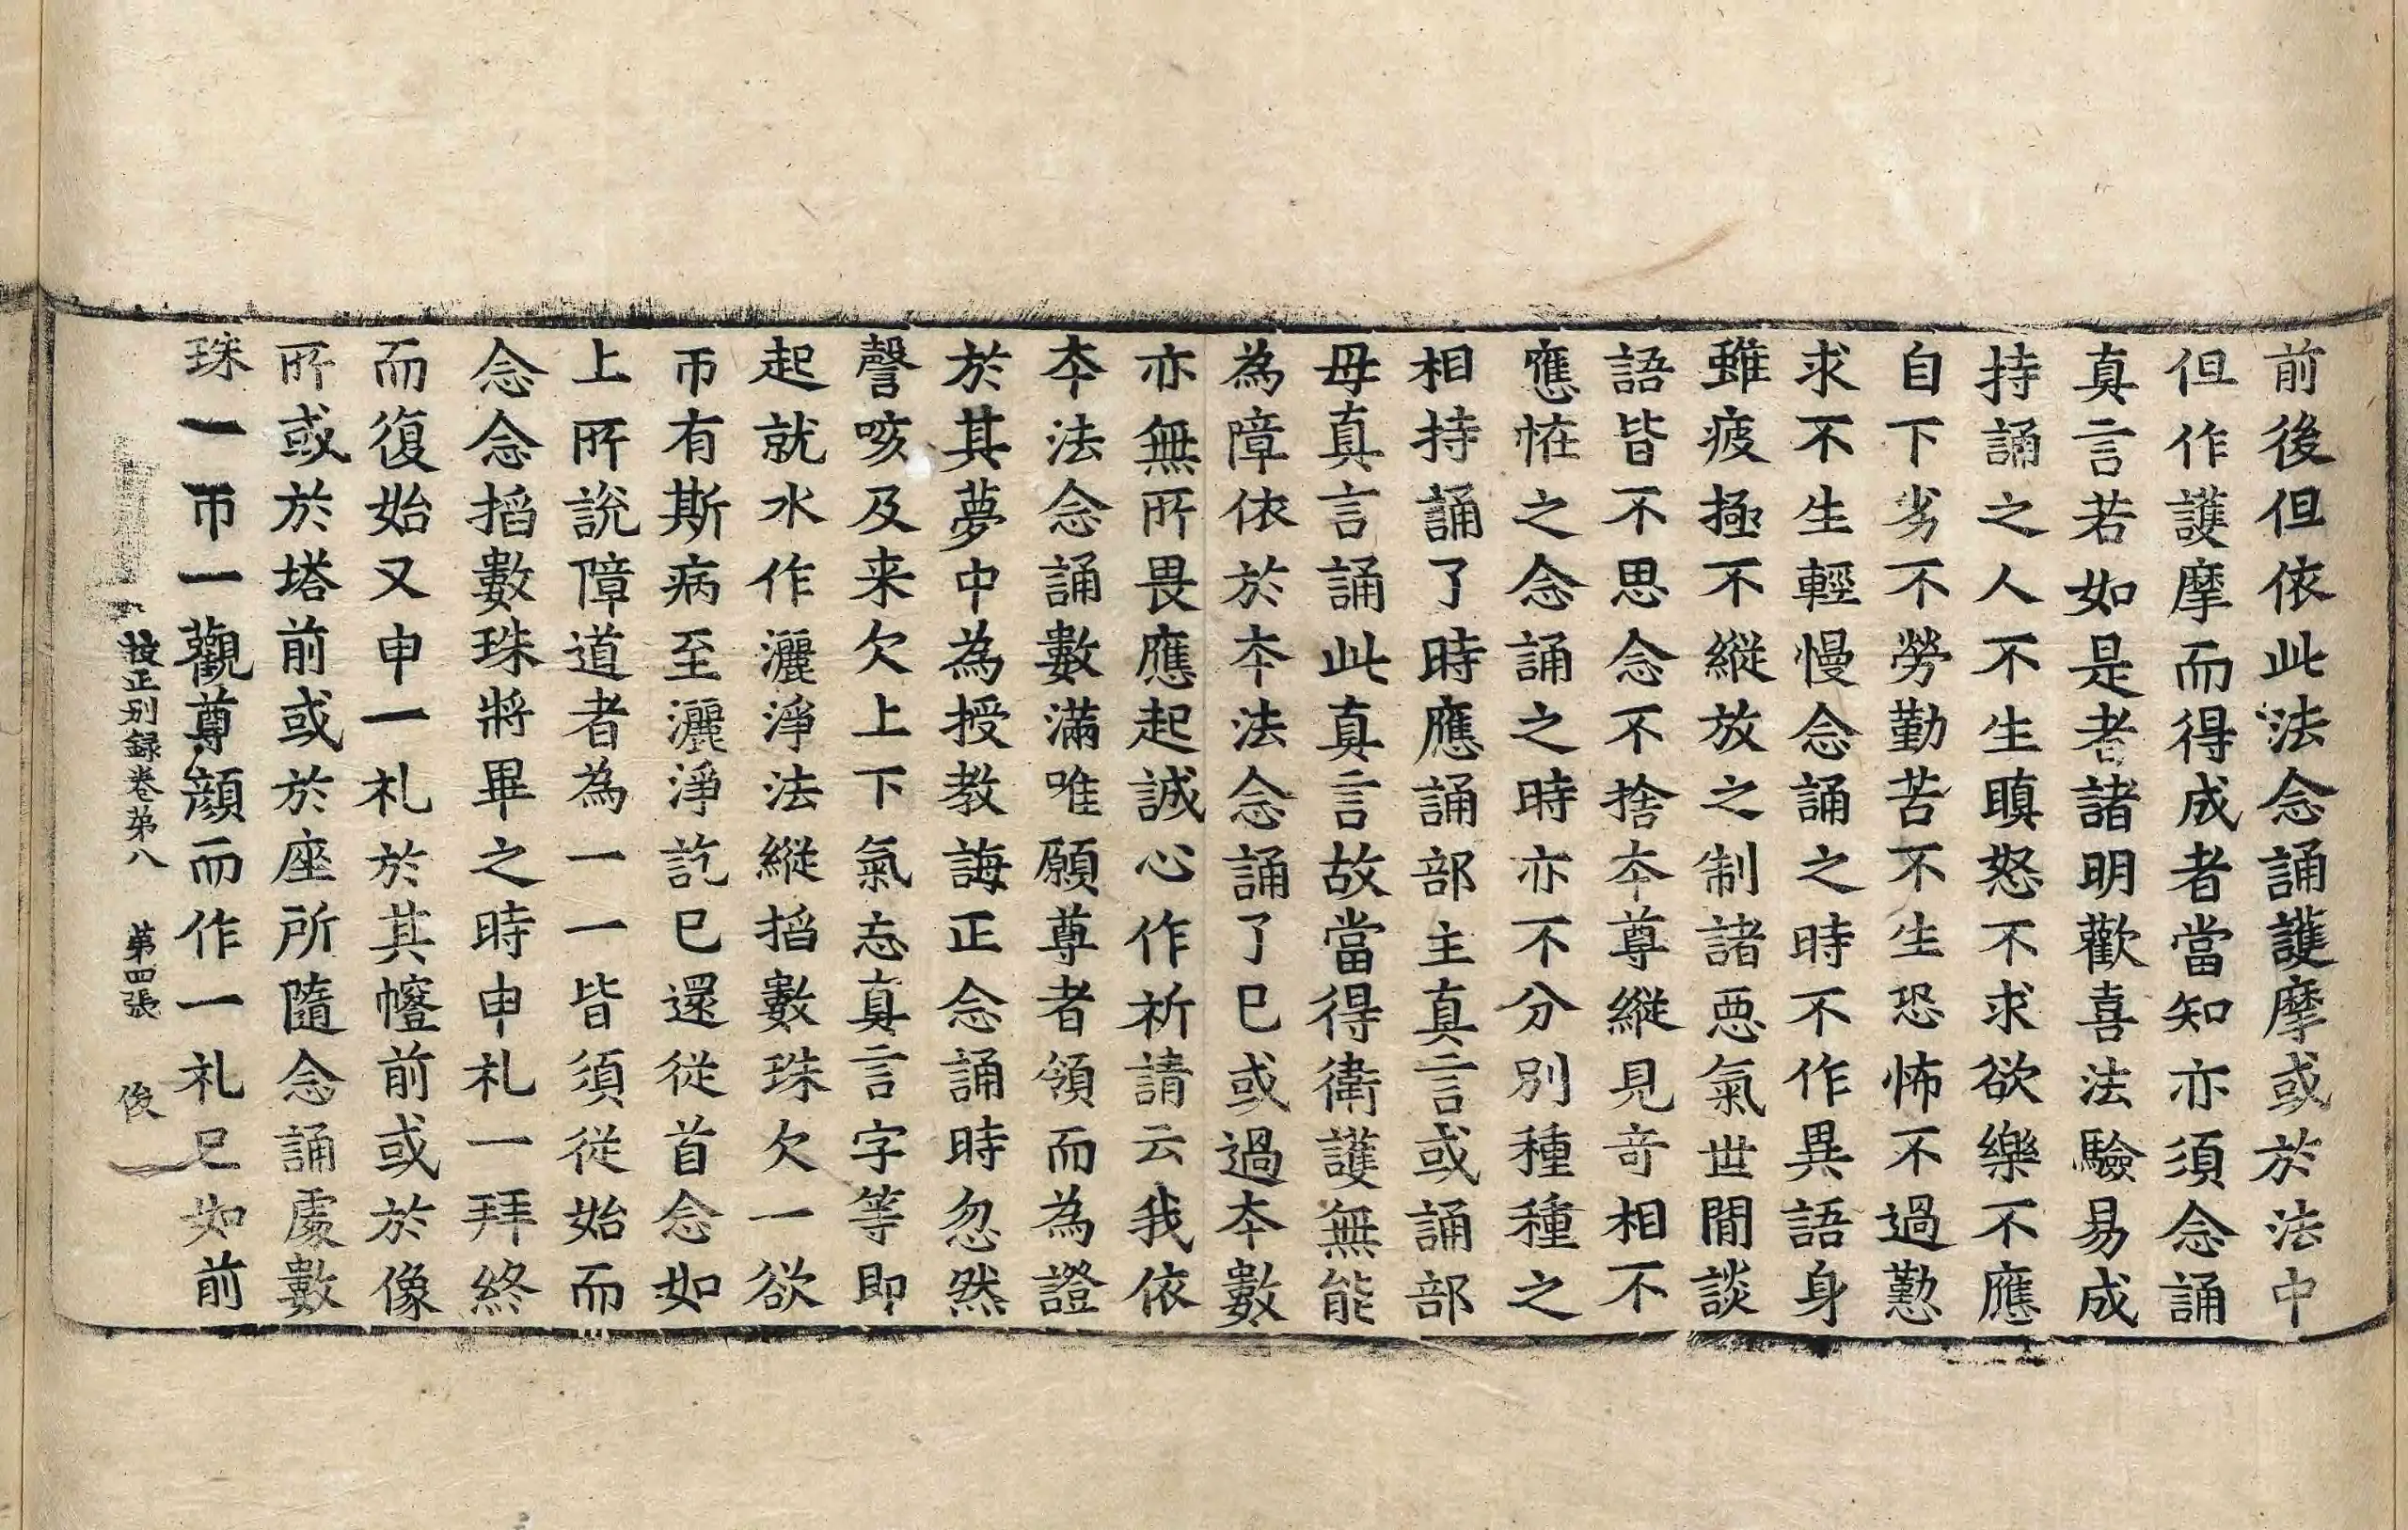 前後但依此法念誦護摩或於法中
但作護摩而得成者當知亦須念誦
真言若如是者諸明歡喜法驗易成
持誦之人不生瞋怒不求欲樂不應
自下劣不勞勤苦不生恐怖不過懃
求不生輕慢念誦之時不作異語身
雖疲極不縱放之制諸惡氣世閒談
語皆不思念不捨本尊縱見奇相不
應恠之念誦之時亦不分別種種之
相持誦了時應誦部主真言或誦部
母真言誦此真言故當得衛護無能
為障依於本法念誦了已或過本數
亦無所畏應起誠心作祈請云我依
本法念誦數滿唯願尊者領而為證
於其夢中為授教誨正念誦時忽然
謦咳及来欠上下氣忘真言字等即
起就水作灑淨法縱搯數珠欠一欲
帀有斯病至灑淨訖已還從首念如
上所說障道者為一一皆須從始而
念念搯數珠將畢之時申礼一拜終
而復始又申一礼於其幢前或於像
所或於塔前或於座所隨念誦處數
珠一帀一觀尊顔而作一礼已如前
校正別録卷第八　第四張　俊